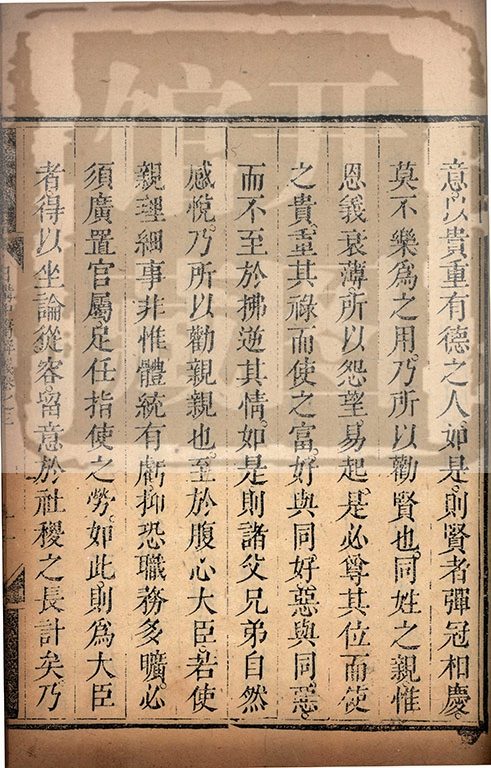 意以貴重有德之人如是則賢者彈冠相慶
莫不樂爲之用乃所以勸賢也同姓之親惟
恩義衰薄所以怨望易起是必尊其位而使
之貴重其祿而使之富好與同好惡與同惡
而不至於拂逆其情如是則諸父兄弟自然
感悅乃所以勸親親也至於腹心大臣若使
親理細事非惟體統有虧抑恐職務多曠必
須廣置官屬足任指使之勞如此則爲大臣
者得以坐論從容畱意於社稷之長計矣乃